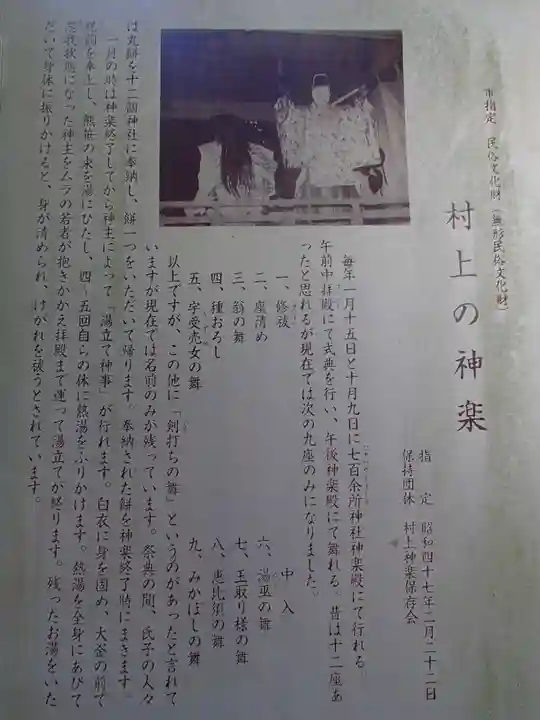 市指定 民俗文化財（無形民俗文化財）
村上の神楽
指定 昭和四十七年二月二十二日
保持団体 村上神楽保存会
毎年一月十五日と十月九日に七百余所神社神楽殿にて行れる
午前中拝殿にて式典を行い、午後神楽殿にて舞れる。昔は十二座あ
ったと思れるが現在では次の九座のみになりました。
一、修祓
二、座清め
三、翁の舞
四、種おろし
五、宇受売女の舞
中入
六、湯巫の舞
七、玉取り様の舞
八、恵比須の舞
九、みかぼしの舞
以上ですが、この他に「剣打ちの舞」というのがあったと言れて
いますが現在では名前のみが残っています。祭典の間、氏子の人々
は丸餅を十二個神社に奉納し、餅一つをいただいて帰ります。奉納された餅を神楽終了時にまきます。
一月の時は神楽終了してから神主によって「湯立て神事」が行れます。白衣に身を固め、大釜の前で
祝詞を奉上し、熊笹の束を湯にひたし、四〜五回自らの体に熱湯をふりかけます。熱湯を全身にあびて
状態になった神主をムラの若者が抱きかかえ拝殿まで運って湯立てが終ります。残ったお湯をいた
だいて身体に振りかけると、身が清められ、けがれを祓うとされています。